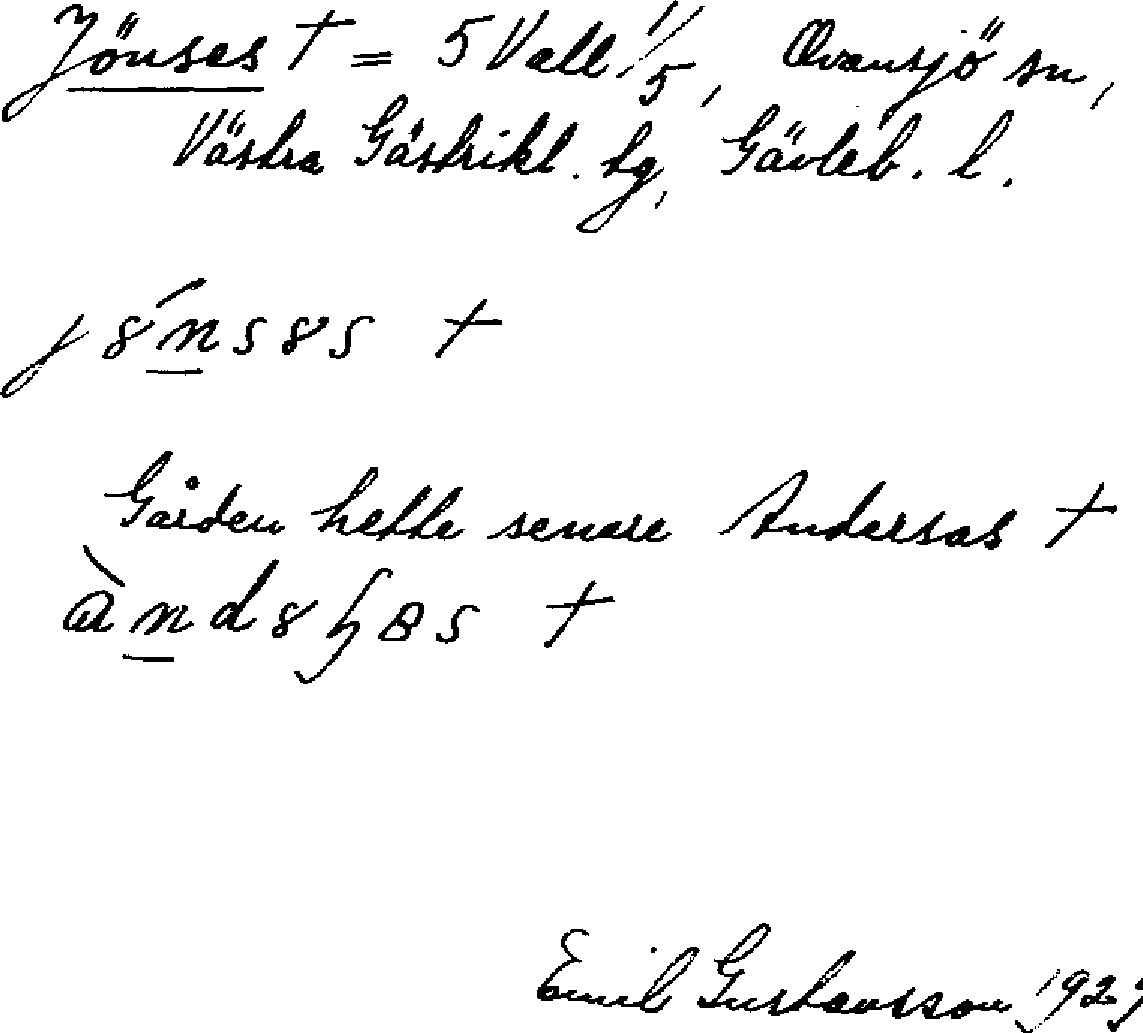 Jönses † = 5 Vall 1/5, Ovansjö sn,
Västra Gästrikl. tg, Gävleb. l.
j 8́ n s 8 s †
Gården hette senare Andersas †
ɑ̀ n d 8 ʂ a s †
Emil Gustavsson 1929